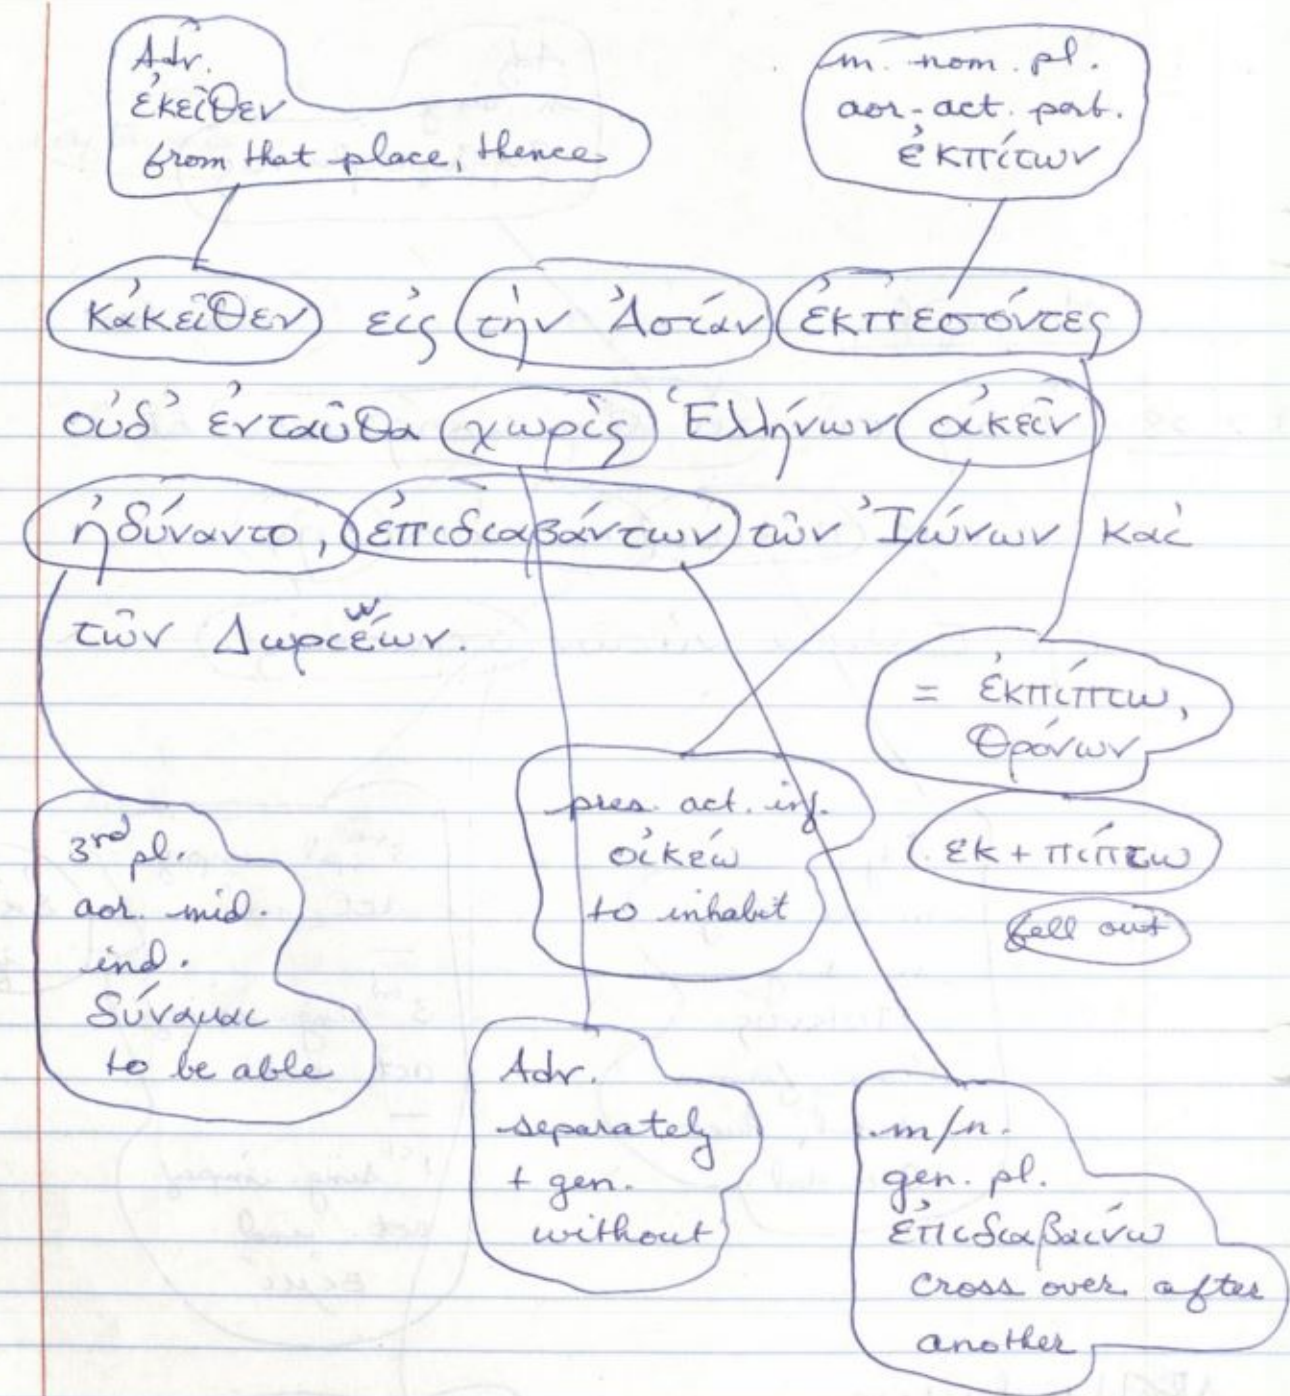 Adv.
ἐκεῖθεν
from that place, thence
m. nom. pl.
aor. act. part.
ἐκπίτων
κἀκεῖθεν εἰς τὴν Ἀσίαν ἐκπεσόντες
οὐδ' ἐνταῦθα χωρὶς Ἑλλήνων οἰκεῖν
ἠδύναντο, ἐπιδιαβάντων τῶν Ἰώνων καὶ
τῶν Δωριέων.
= ἐκπίπτω,
θρόνων
εκ + πίπτω
fell out
pres. act. inf.
οἰκέω
to inhabit
3rd pl.
aor. mid.
ind.
δύναμαι
to be able
Adv.
separately
+ gen.
without
m/n.
gen. pl.
ἐπιδιαβαίνω
cross over after
another